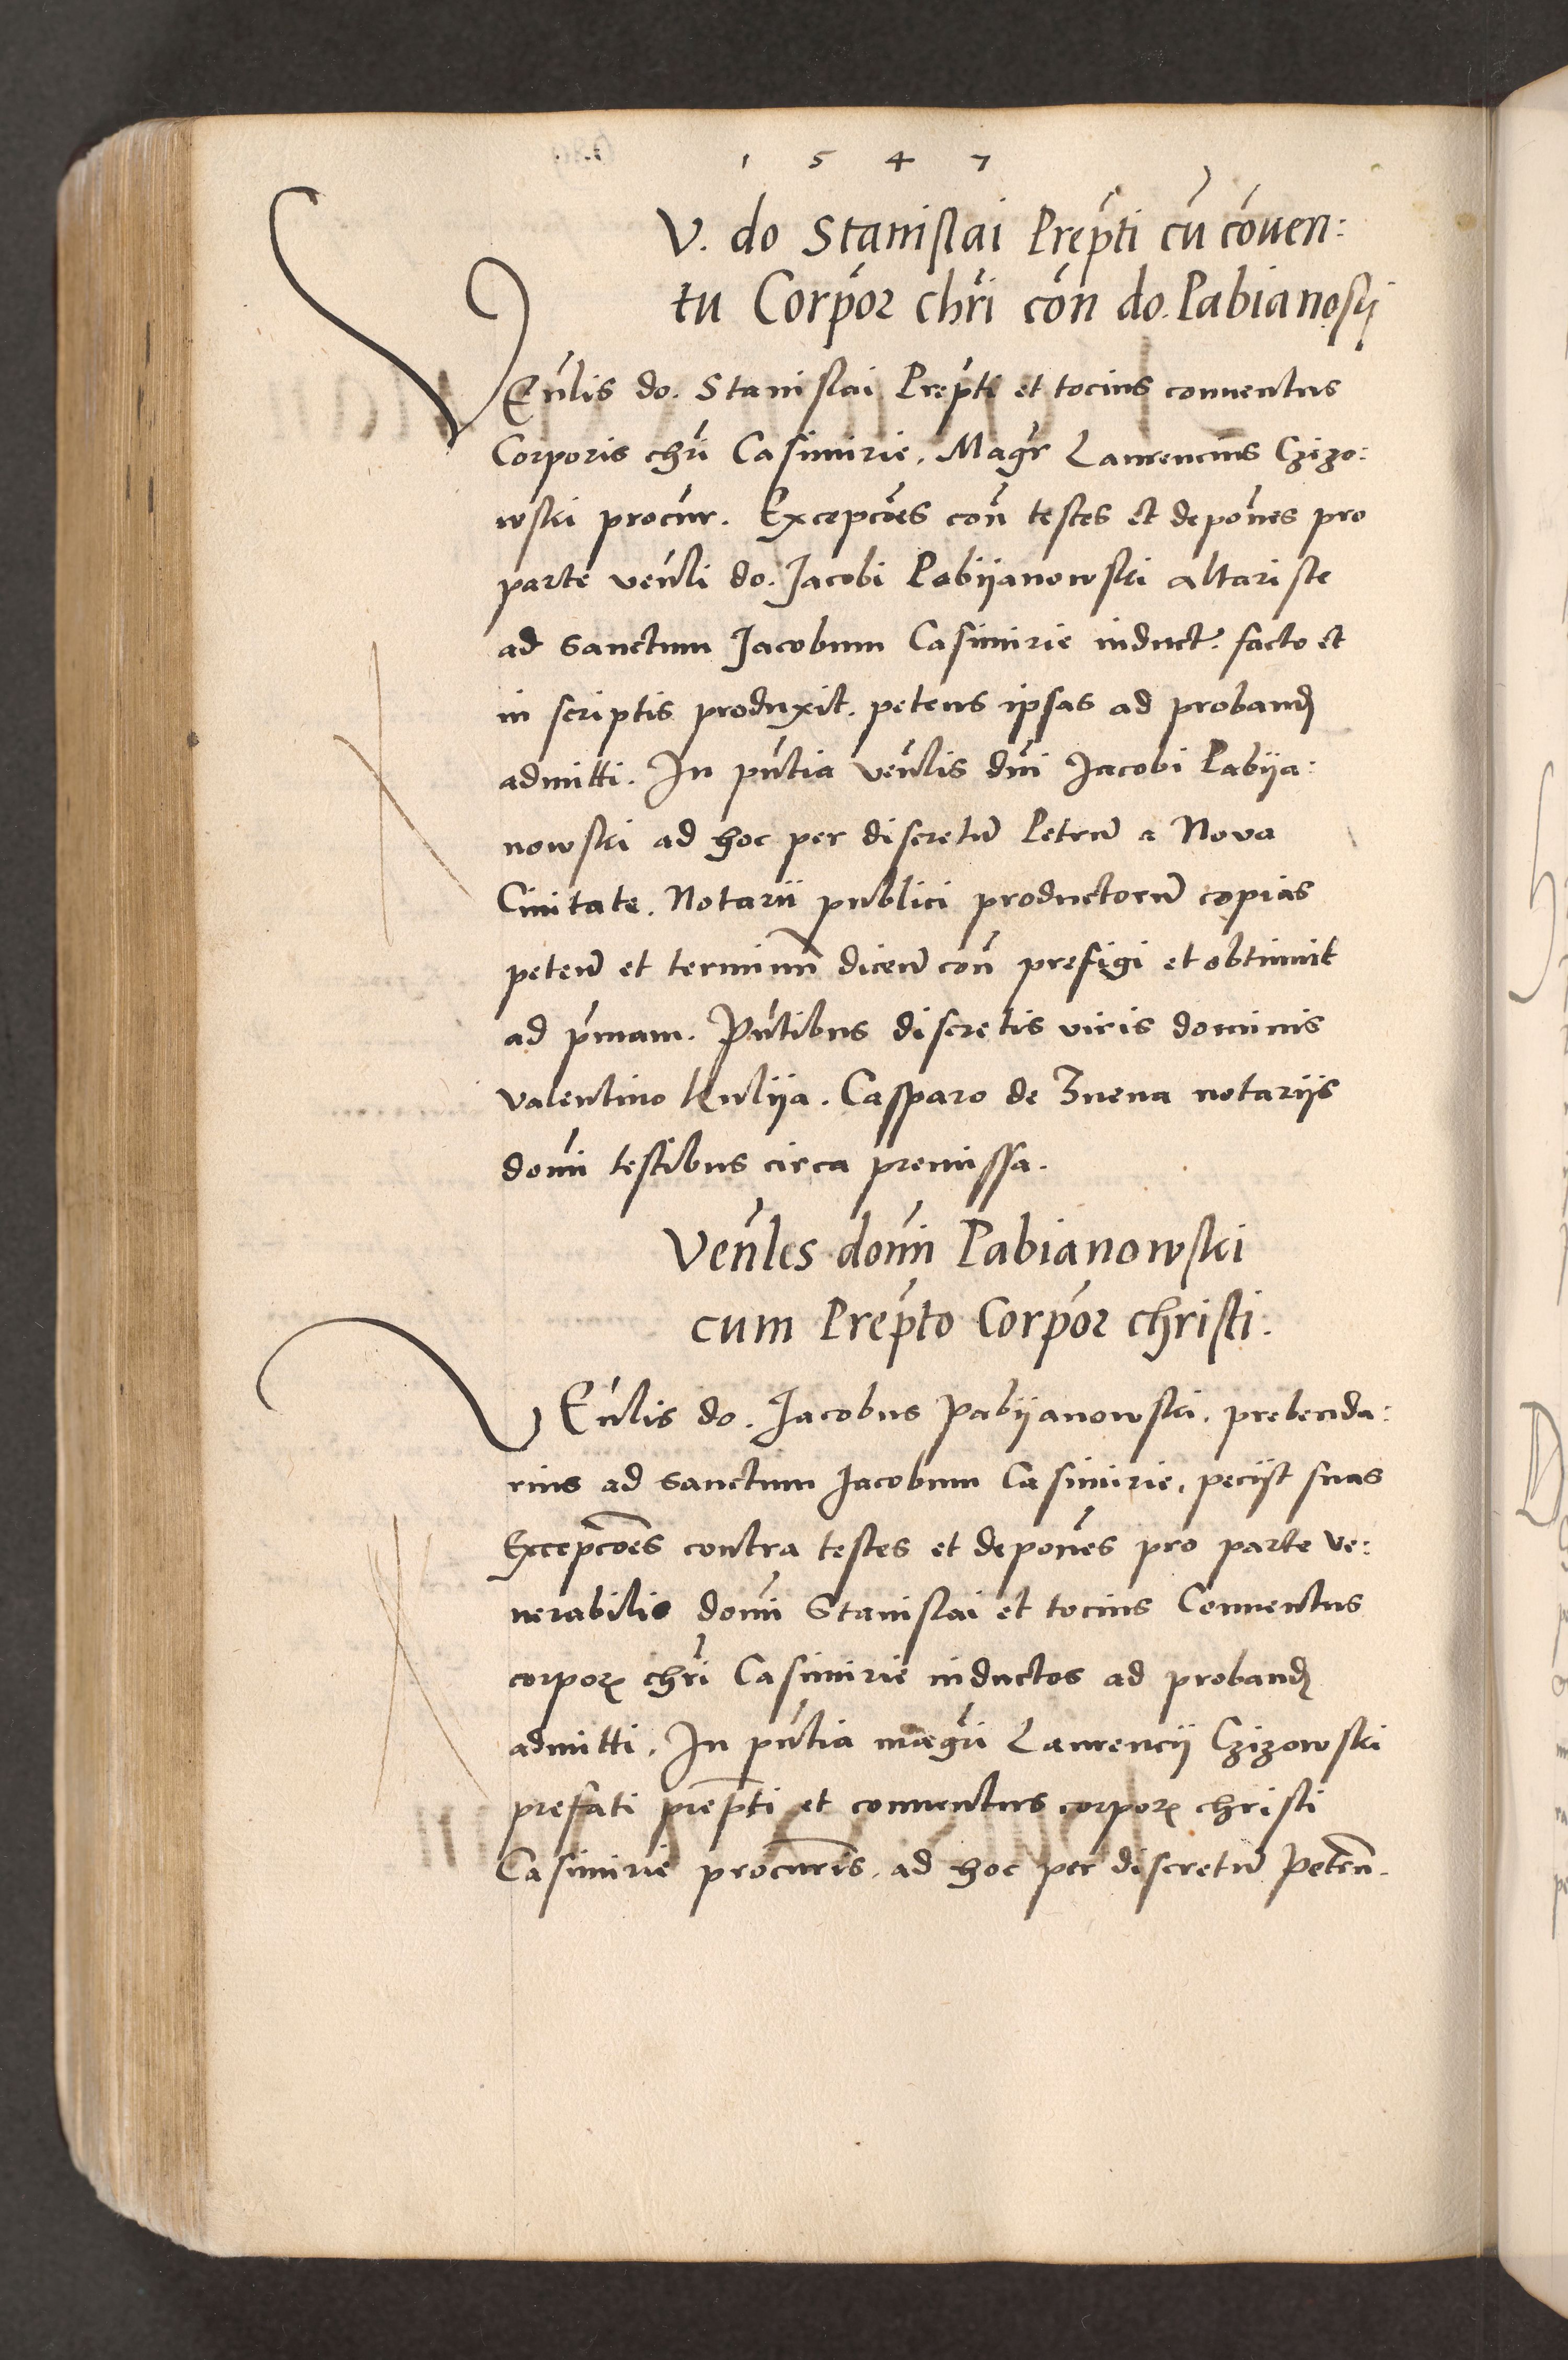 1 5 4 7
V. do Stanislai Prep̃ti cũ cõuen:
tu Corpor̃ chr̃i cõn do. Pabianosӱ
VEñlis do. Stanislai Prep̃ti et tocius conuentus
Corporis chr̃i Casimirie. Magr̃ Laurencius Czizo:
wski procũr. Excepcões cõn testes et depoñes pro
parte veñli do. Jacobi Pabijanowski altariste
ad sanctum Jacobum Casimirie induct. facto et
in scriptis produxit. petens ipsas ad proband
admitti. In pñtia veñlis dñi Jacobi Pabija:
nowski ad hoc per discretũ Petrũ a Nova
Ciuitate. Notarii publici productorũ copias
peteñ et terminũ diceñ cõn prefigi et obtinuit
ad p̃mam. Pñtibus discretis viris dominis
valentino Kulija. Casparo de Znena notarijs
domĩ testibus circa premissa.
Veñles domĩ Pabianowski
cum Prep̃to Corpor̃ christi.
VEñlis do. Jacobus Pabijanowski. prebenda:
rius ad sanctum Jacobum Casimirie. pecijt suas
Excepcões contra testes et depoñes pro parte ve:
nerabilis domĩ Stanislai et tocius Conuentus
corpor̃ chr̃i Casimirie inductos ad proband
admitti. In pñtia magr̃i Laurencij Czizowski
prefati prep̃ti et conuentus corpor̃ christi
Casimirie procur̃is. ad hoc per discretũ Petrũ.